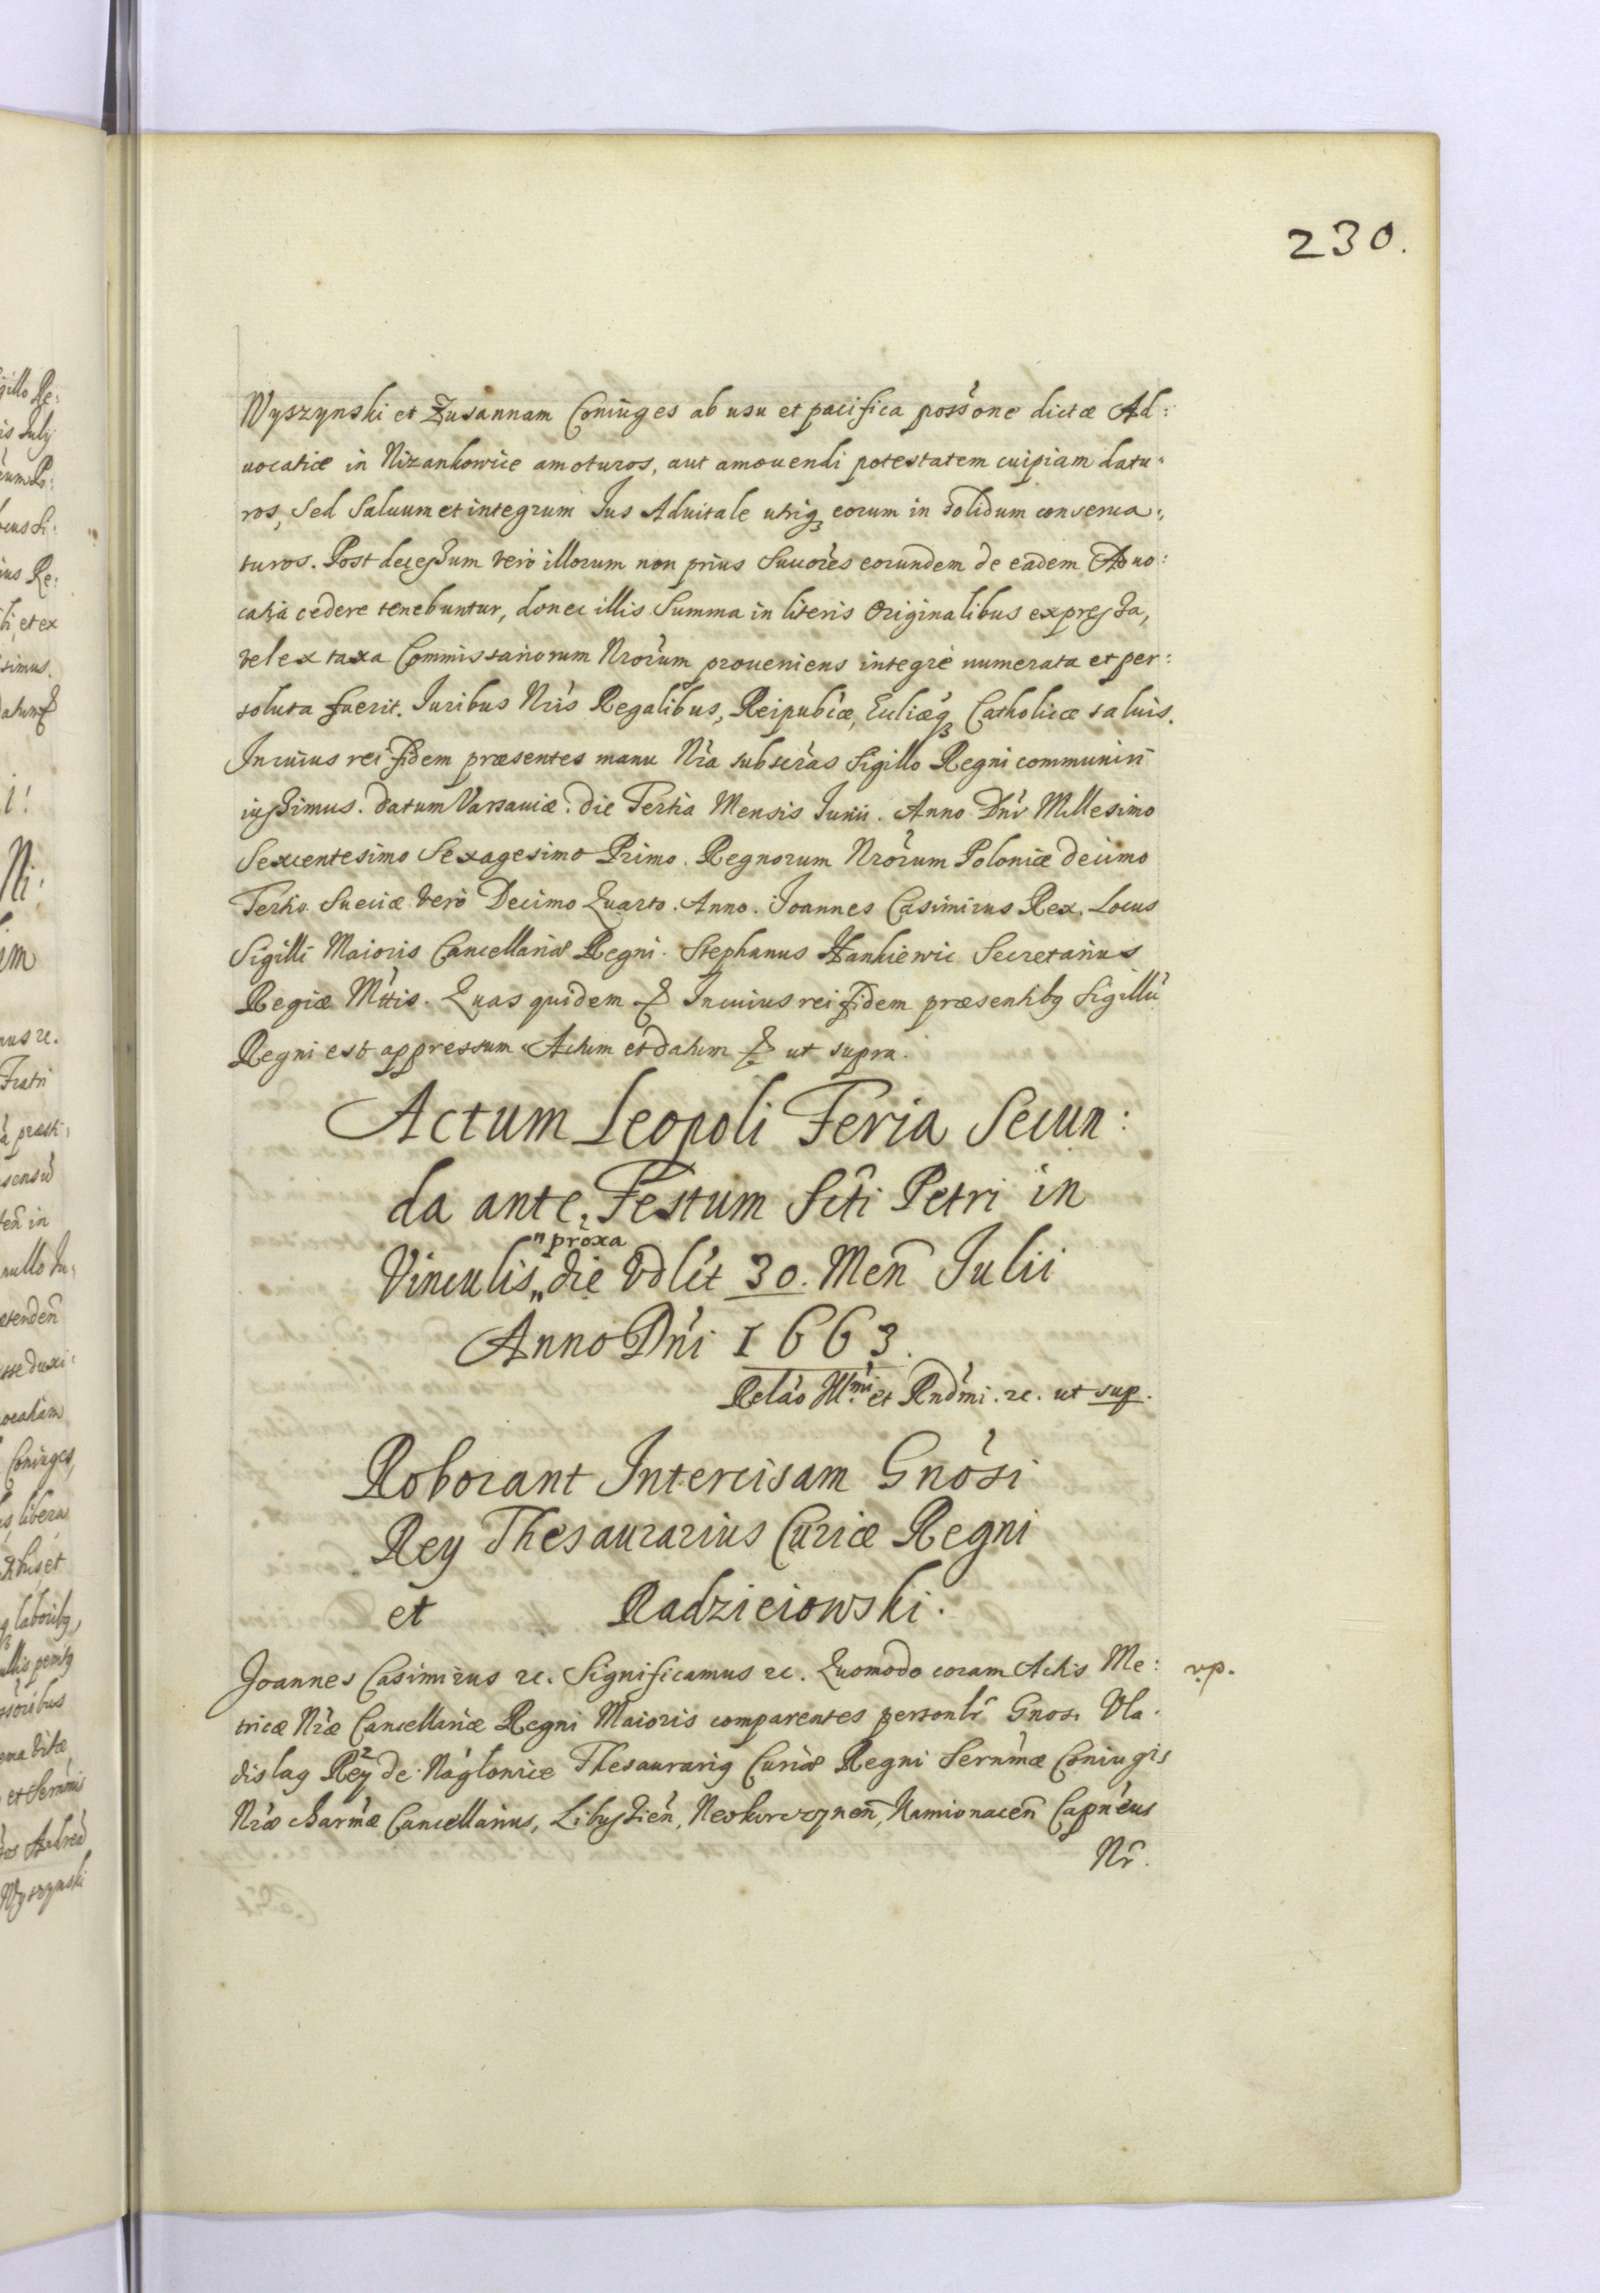 230.
Wyszynski et Zusannam Coniuges ab usu et pacifica possone dictæ Ad:
uocatiæ in Nizankowice amoturos, aut amouendi potestatem cuipiam datu:
ros, sed saluum et integrum Jus Aduitale utriq eorum in solidum conserua:
turos. Post decessum vero illorum non prius Succores eorundem de eadem Aduo:
catia cedere tenebuntur, donec illis Summa in literis Originalibus expressa,
vel ex taxa Commissariorum Nrorum proueniens integre numerata et per:
soluta fuerit. Juribus Nris Regalibus, Reipublcæ, Eccliæq Catholicæ saluis.
In cuius rei fidem præsentes manu Nra subscras Sigillo Regni communiri
iussimus. Datum Varsauiæ. die Tertia Mensis Junii. Anno Dni Millesimo
Sexcentesimo Sexagesimo Primo. Regnorum Nrorum Poloniæ decimo
Tertio. Sueciæ vero Decimo Quarto. Anno. Joannes Casimirus Rex. Locus
Sigilli Maioris Cancellariæ Regni. Stephanus Hankiewic Secretarius
Regiæ Mttis. Quas quidem & In cuius rei fidem præsentibq Sigillu
Regni est appressum Actum et datum & ut supra.
Actum Leopoli Feria Secun:
da ante Festum Scti Petri in
Vinculis, " proxa die vdlit 30. Men Julii
Anno Dni 1663.
Relao Illmi et Rndmi. rc. ut sup.
Roborant Intercisam Gnosi
Rey Thesaurarius Curiæ Regni
et Radzieiowski.
Joannes Casimirus rc. Significamus rc. Quomodo coram Actis Me:
vp.
tricæ Nræ Cancellariæ Regni Maioris comparentes personlr Gnosi Vla:
dislaq Rey de Naglowice Thesaurariq Curiæ Regni Sernmæ Coniugis
Nræ charmæ Cancellarius, Libussien, Neokorczynen, Kamionacen Capneus
Nr.